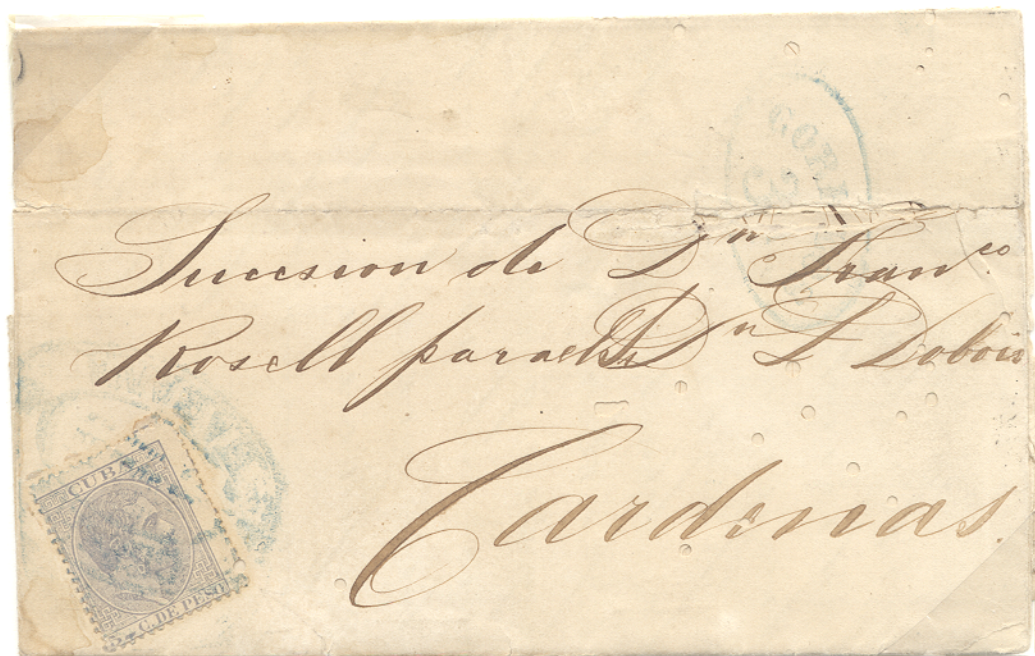 CORREO
Sucesion de Dn Franco
Rosell para Dn Dubois
Cardenas.
CUBA
5 C. DE PESO